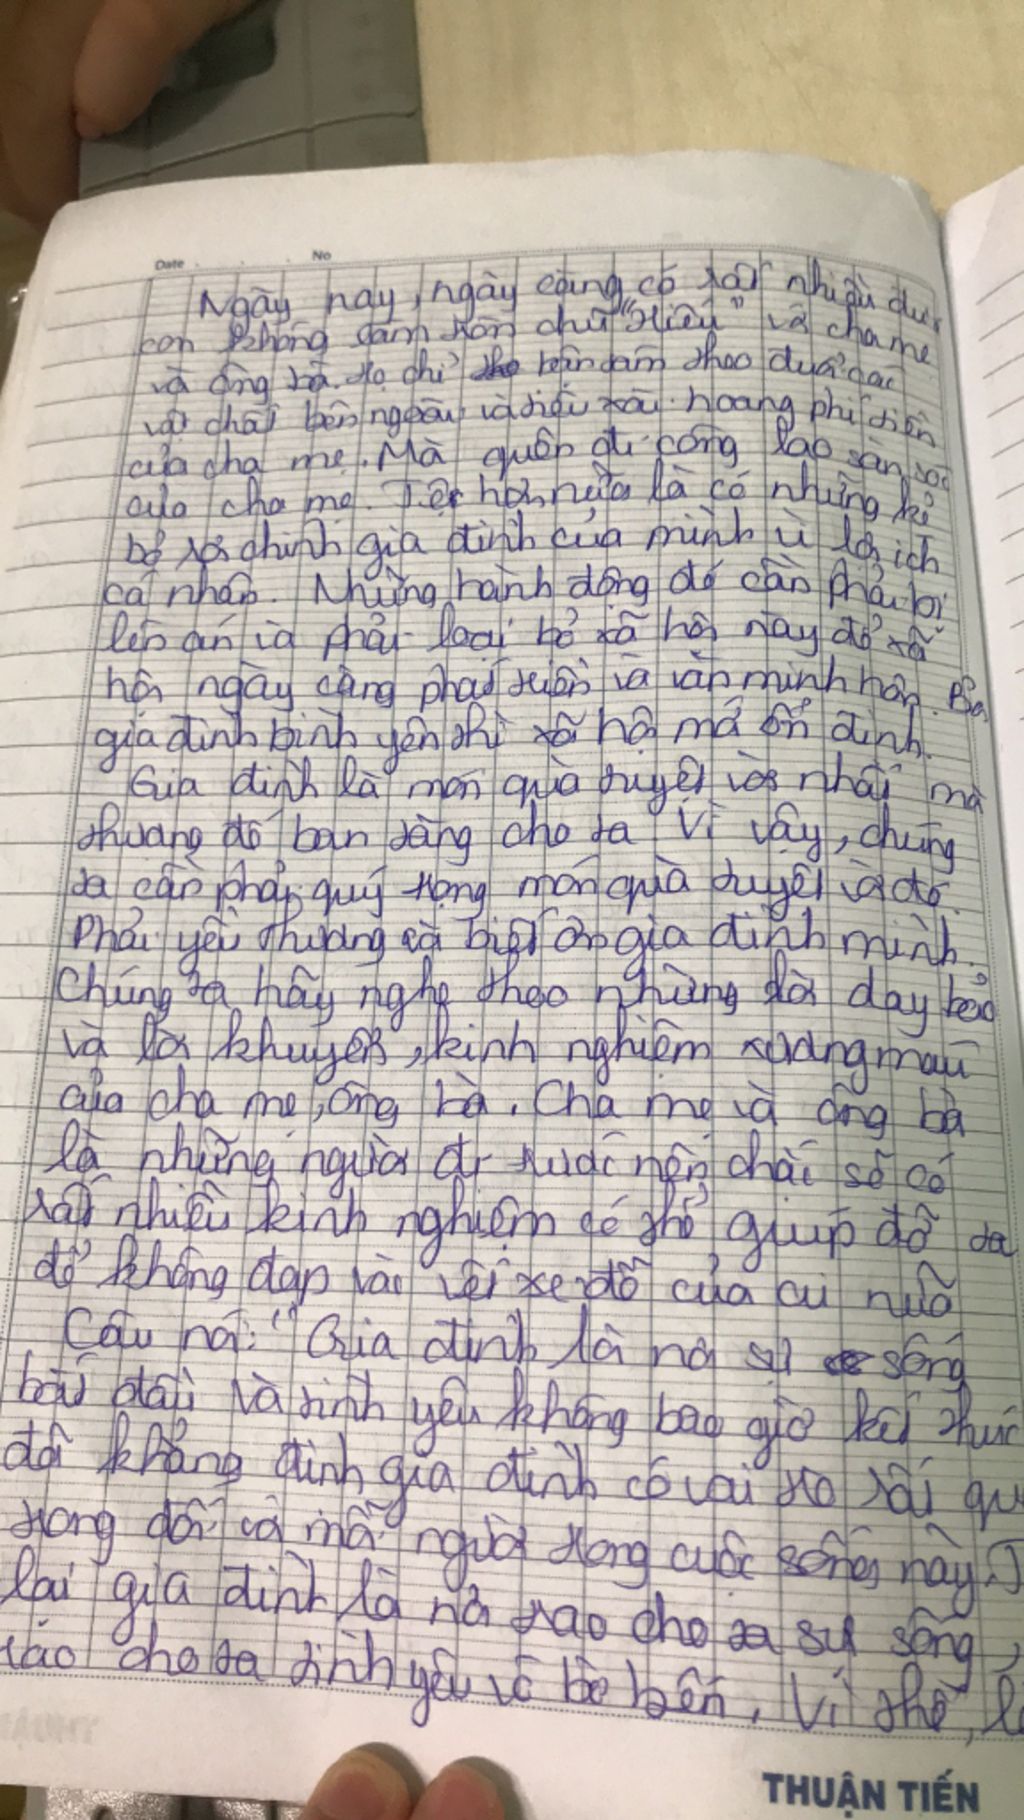 Date No
Ngày nay, ngày càng có rất nhiều đứa
con không làm tròn chữ "Hiếu" và cha mẹ
và ông bà. Họ chỉ bận tâm theo đuổi các
vật chất bên ngoài và tiêu xài hoang phí tiền
của cha mẹ. Mà quên đi công lao săn sóc
của cha mẹ. Tệ hơn nữa là có những kẻ
bỏ rơi chính gia đình của mình vì lợi ích
cá nhân. Những hành động đó cần phải bị
lên án và phải loại bỏ xã hội này để xã
hội ngày càng phát triển và văn minh hơn.
gia đình bình yên thì xã hội mớ ổn định.
Gia đình là món quà tuyệt vời nhất mà
thượng đế ban tặng cho ta Vì vậy, chúng
ta cần phải quý trọng món quà tuyệt vời đó.
Phải yêu thương và biết ơn gia đình mình.
Chúng ta hãy nghe theo những lời dạy bảo
và lời khuyên, kinh nghiệm xương máu
của cha mẹ, ông bà. Cha mẹ và ông bà
là những người đi trước nên chắc sẽ có
rất nhiều kinh nghiệm có thể giúp đỡ ta
để không đạp vào vết xe đổ của cui nữa
Câu nói: "Gia đình là nơi sự sống
bắt đầu và tình yêu không bao giờ kết thúc
đã khẳng định gia đình có vai trò rất qu
trong đối với mỗi người trong cuộc sống này
lại gia đình là nơi trao cho ta sự sống,
trao cho ta tình yêu vô bờ bến. Vì thế,
THUẬN TIẾN